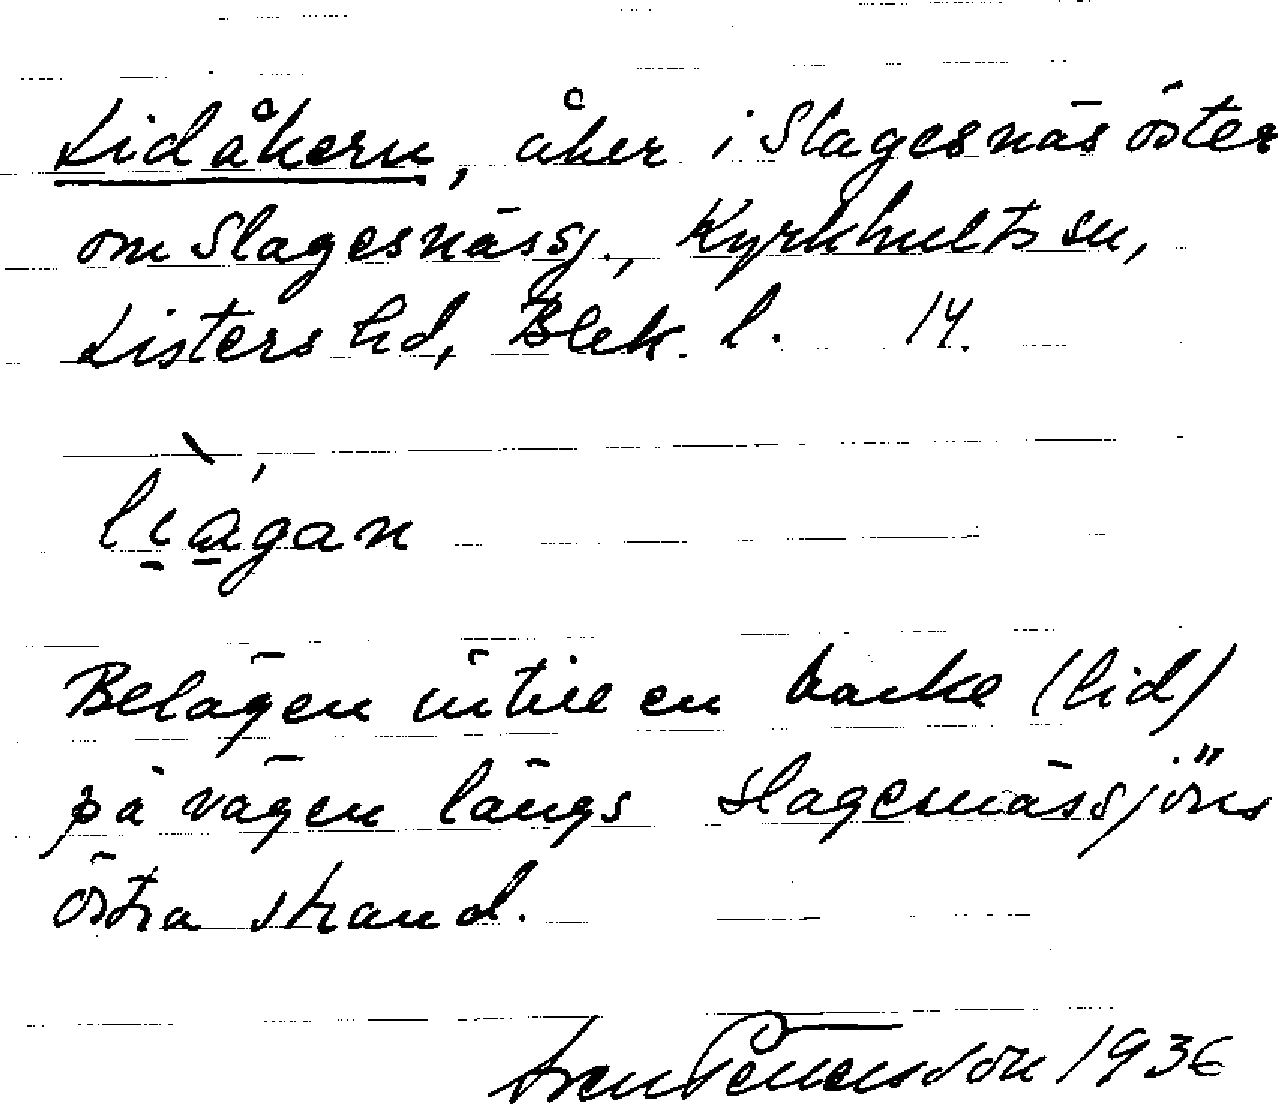 Lidåkern, åker i Slagesnäs öster
om Slagesnässj., Kyrkhults sn,
Listers hd, Blek. l. 14.
lìágan
Belägen intill en backe (lid)
på vägen längs Slagesnässjöns
östra strand.
1936